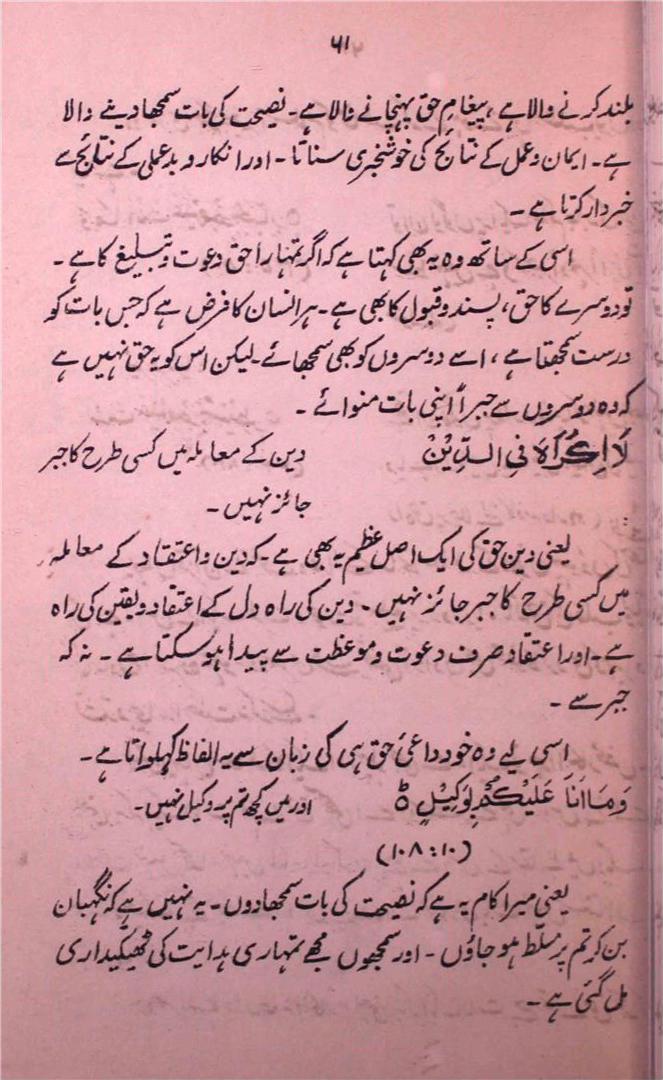 ۶۱
بلند کرنے والا ہے، پیغامِ حق پہنچانے والا ہے۔ نصیحت کی بات سمجھا دینے والا
ہے۔ ایمان و عمل کے نتائج کی خوشخبری سناتا۔ اور انکار و بدعملی کے نتائج سے
خبردار کرتا ہے۔
اسی کے ساتھ وہ یہ بھی کہتا ہے کہ اگر تمہارا حق دعوت و تبلیغ کا ہے۔
تو دوسرے کا حق، پسند و قبول کا بھی ہے۔ ہر انسان کا فرض ہے کہ جس بات کو
درست سمجھتا ہے، اسے دوسروں کو بھی سمجھائے۔ لیکن اس کو یہ حق نہیں ہے
کہ وہ دوسروں سے جبراً اپنی بات منوائے۔
لَا اِكْرَاهَ فِي الدِّيْنْ دین کے معاملہ میں کسی طرح کا جبر
جائز نہیں۔
یعنی دین حق کی ایک اصل عظیم یہ بھی ہے۔ کہ دین و اعتقاد کے معاملہ
میں کسی طرح کا جبر جائز نہیں۔ دین کی راہ دل کے اعتقاد و یقین کی راہ
ہے۔ اور اعتقاد صرف دعوت و موعظت سے پیدا ہو سکتا ہے۔ نہ کہ
جبر سے۔
اسی لیے وہ خود داعیٔ حق ہی کی زبان سے یہ الفاظ کہلواتا ہے۔
وَمَا اَنَا عَلَيْكُمْ بِوَكِيْلٍ ۵ اور میں کچھ تم پر وکیل نہیں۔
(۱۰۸:۱۰)
یعنی میرا کام یہ ہے کہ نصیحت کی بات سمجھا دوں۔ یہ نہیں ہے کہ نگہبان
بن کر تم پر مسلط ہو جاؤں۔ اور سمجھوں مجھے تمہاری ہدایت کی ٹھیکیداری
مل گئی ہے۔